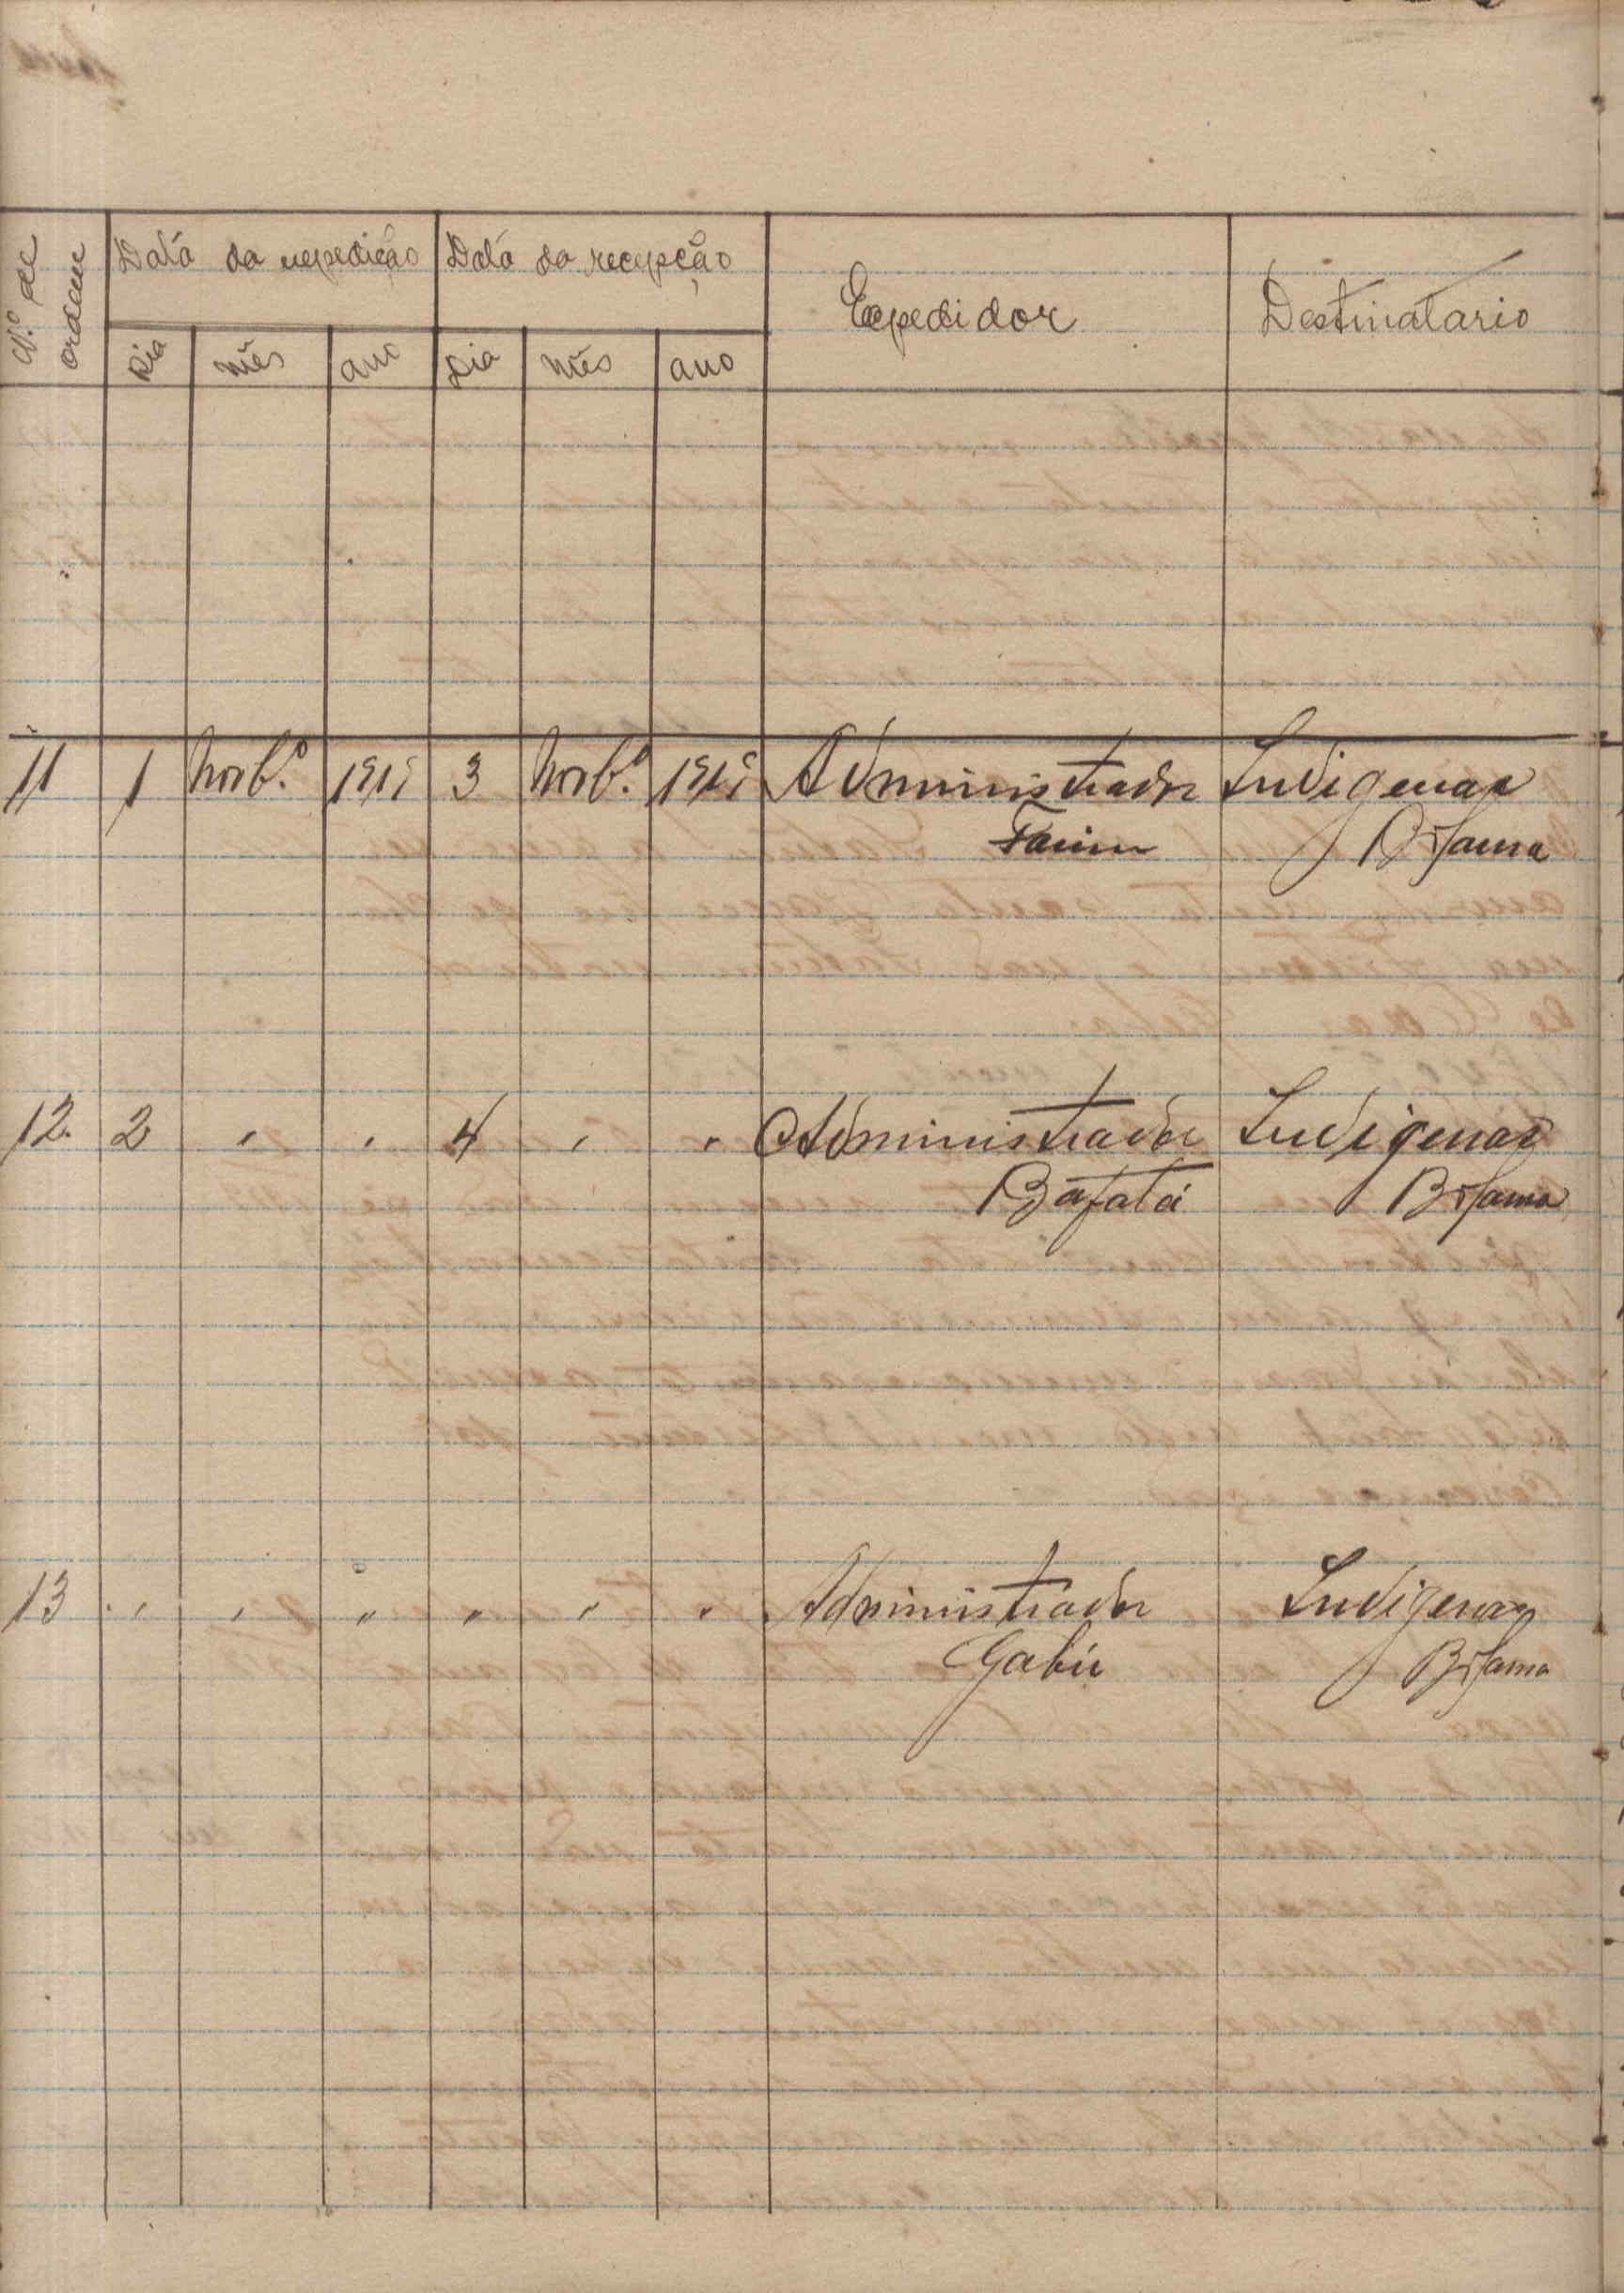 Nº de ordem
Data da expedição Data da recepção Expedidor Destinatario
Dia mês ano Dia mês ano
11 1 Novbº 1915 3 Novbº 1915 Administrador Indigenas
Farim Bolama
12. 2 " " 4 " " Administrador Indigenas
Bafatá Bolama
13 " " " " " " Administrador Indigenas
Gabú Bolama